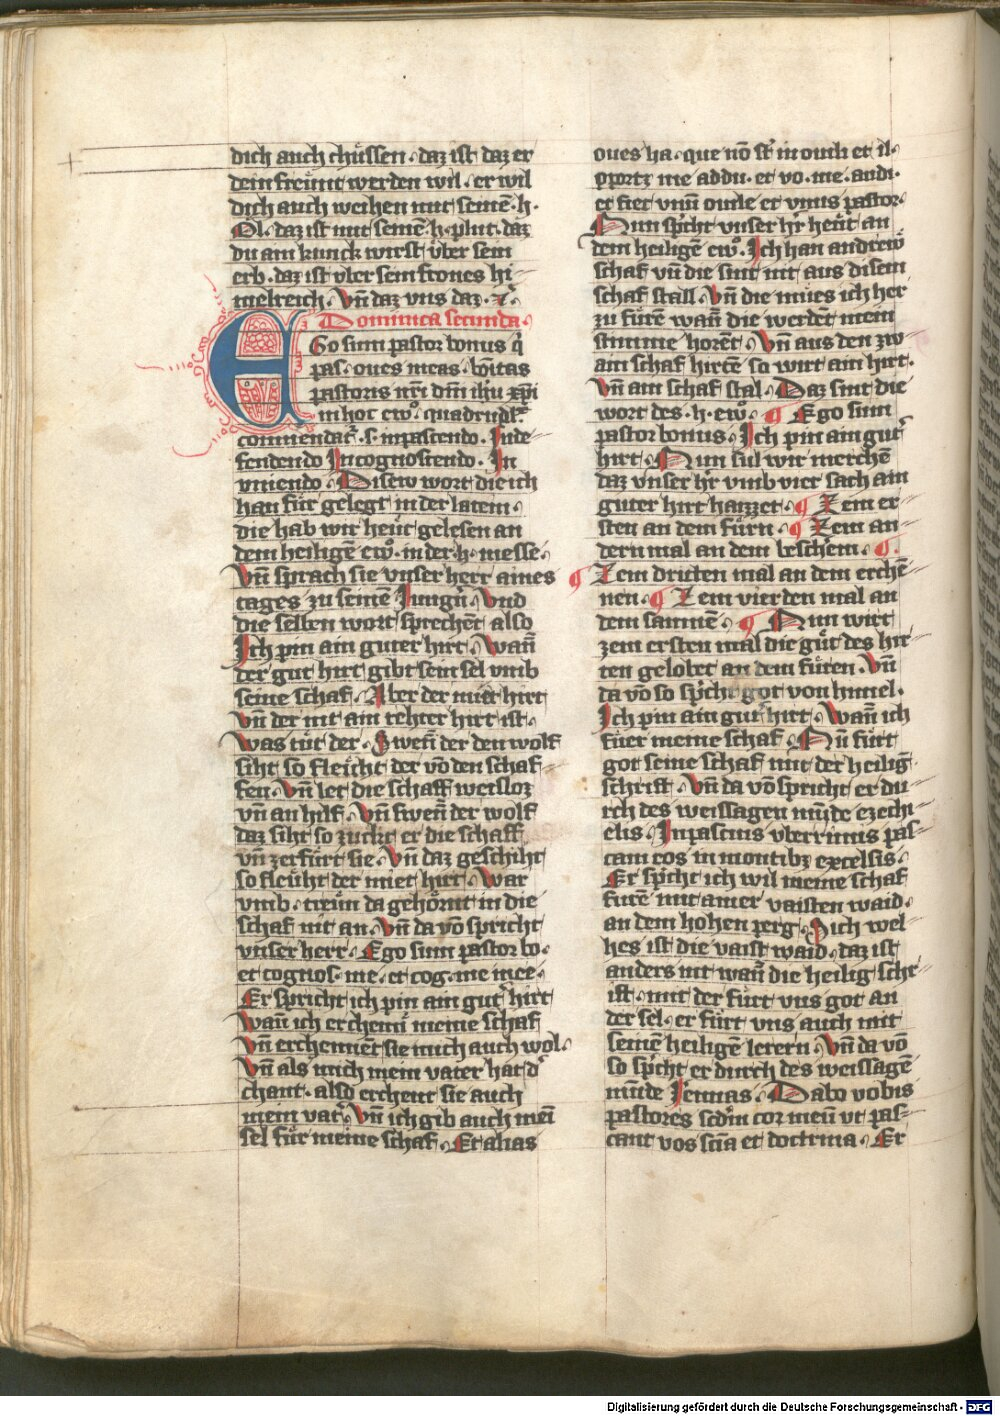 dich auch chüssen · daz ist daz er
dein freünt werden wil · er wil
dich auch weihen mit seinē · h ·
Öl · daz ist mit seinē · h · plut · daz
du am kunck wirst über sein
erb · daz ist über sein frones hi-
melreich · Vn̄ daz vns daz ·
Dominica secunda ·
Ego sum pastor bonus
pas · oues meas · bōitas
pastoris nr̄i dn̄i ih̄u xp̄i
in hoc ewͦ · quadrupl
conmendat · s · in pascendo · In de
fendendo In cognoscendo · In
vniendo · Disew wort die ich
han für gelegt in der latein ·
die hab wir heüt gelesen an
dem heiligē ewͦ · in der · h · messe ·
Vn̄ sprach sie vnser herr aines
tages zu seinē Jungn̄ · Vnd
die selben wort sprechēt also
Ich pin ain guter hirt · Wan̄
der gut hirt gibt sein sel vmb
seine schaf · Aber der miet hirt
vn̄ der nit ain rehter hirt ist ·
Was tüt der · Swen̄ der den wolf
siht so fleücht der vō den schaf-
fen · Vn̄ let die schaff weisloz
vn̄ an hilf · Vn̄ swen̄ der wolf
daz siht so zuckt er die schaff
vn̄ zerfürt sie · Vn̄ daz geschiht
so fleüht der miet hirt · War
vmb · treün da gehörnt in die
schaf nit an · Vn̄ da vō spricht
vnser herr · Ego sum pastor bo ·
et cognos · me · et cog · me mee ·
Er spricht ich pin ain gut̄ hirt
Wan̄ ich erchenn̄ meine schaf
Vn̄ erchennēt sie mich auch wol ·
Vn̄ als mich mein vater hat d̄
chant · also erchent sie auch
mein vat̄ · Vn̄ ich gib auch mein̄
sel für meine schaf · Et alias
oues ha · que nō st̄ in ouili et il ·
oportz me addu · et vo · me · audi ·
et fiet vnu̅ ouile et vnus pastor ·
Nun sp̄cht vnser h̄r heüt an
dem heiligē ewͦ · Ich han andrew
schaf vn̄ die sint nit aus disem
schaf stall · Vn̄ die mües ich her
zu fürē wan̄ die werdēt mein
stimme horēt · Vn̄ aus den zw
ain schaf hirtē so wirt ain hirt ·
Vn̄ ain schaf stal · Daz sint die
wort des · h · ewͦ · ¶ Ego sum
pastor bonus · Ich pin ain gut̄
hirt · Nun sul wir merchē
daz vnser h̄r vmb vier sach ain
guter hirt haizzet · ¶ Zem er
sten an dem fürn · ¶ Zem an-
dern mal an dem beschēm · ¶
Zem dritten mal an dem erchē
nen · ¶ Zem vierden mal an
dem samnē · ¶ Nun wirt
zem ersten mal die güt des hir
ten gelobet an dem füren · Vn̄
da vō so sp̄cht got von himel ·
Ich pin ain gut̄ hirt · Wan̄ ich
füer meine schaf · Nu̅ fürt
got seine schaf mit der heilig̅
schrift · Vn̄ da vō spricht er du
rch des weissagen mu̅de ezechi-
elis · In pascuis vberrimis pas-
cam eos in montibz excelsis ·
Er sp̄cht ich wil meine schaf
fürē mit ainer vaisten waid ·
an dem hohen perg · Sich wel-
hes ist die vaist waid · daz ist
anders nit wan̄ die heilig schr̄-
ift · mit der fürt vns got an
der sel · er fürt vns auch mit
seinē heiligē lerern · Vn̄ da vō
so sp̄cht er durch des weissagē
mu̅de Jeremias · Dabo vobis
pastores scd̄m cor meu̅ vt pas-
cant vos scīa et doctrina · Er
Digitalisierung gefördert durch die Deutsche Forschungsgemeinschaft - DFG